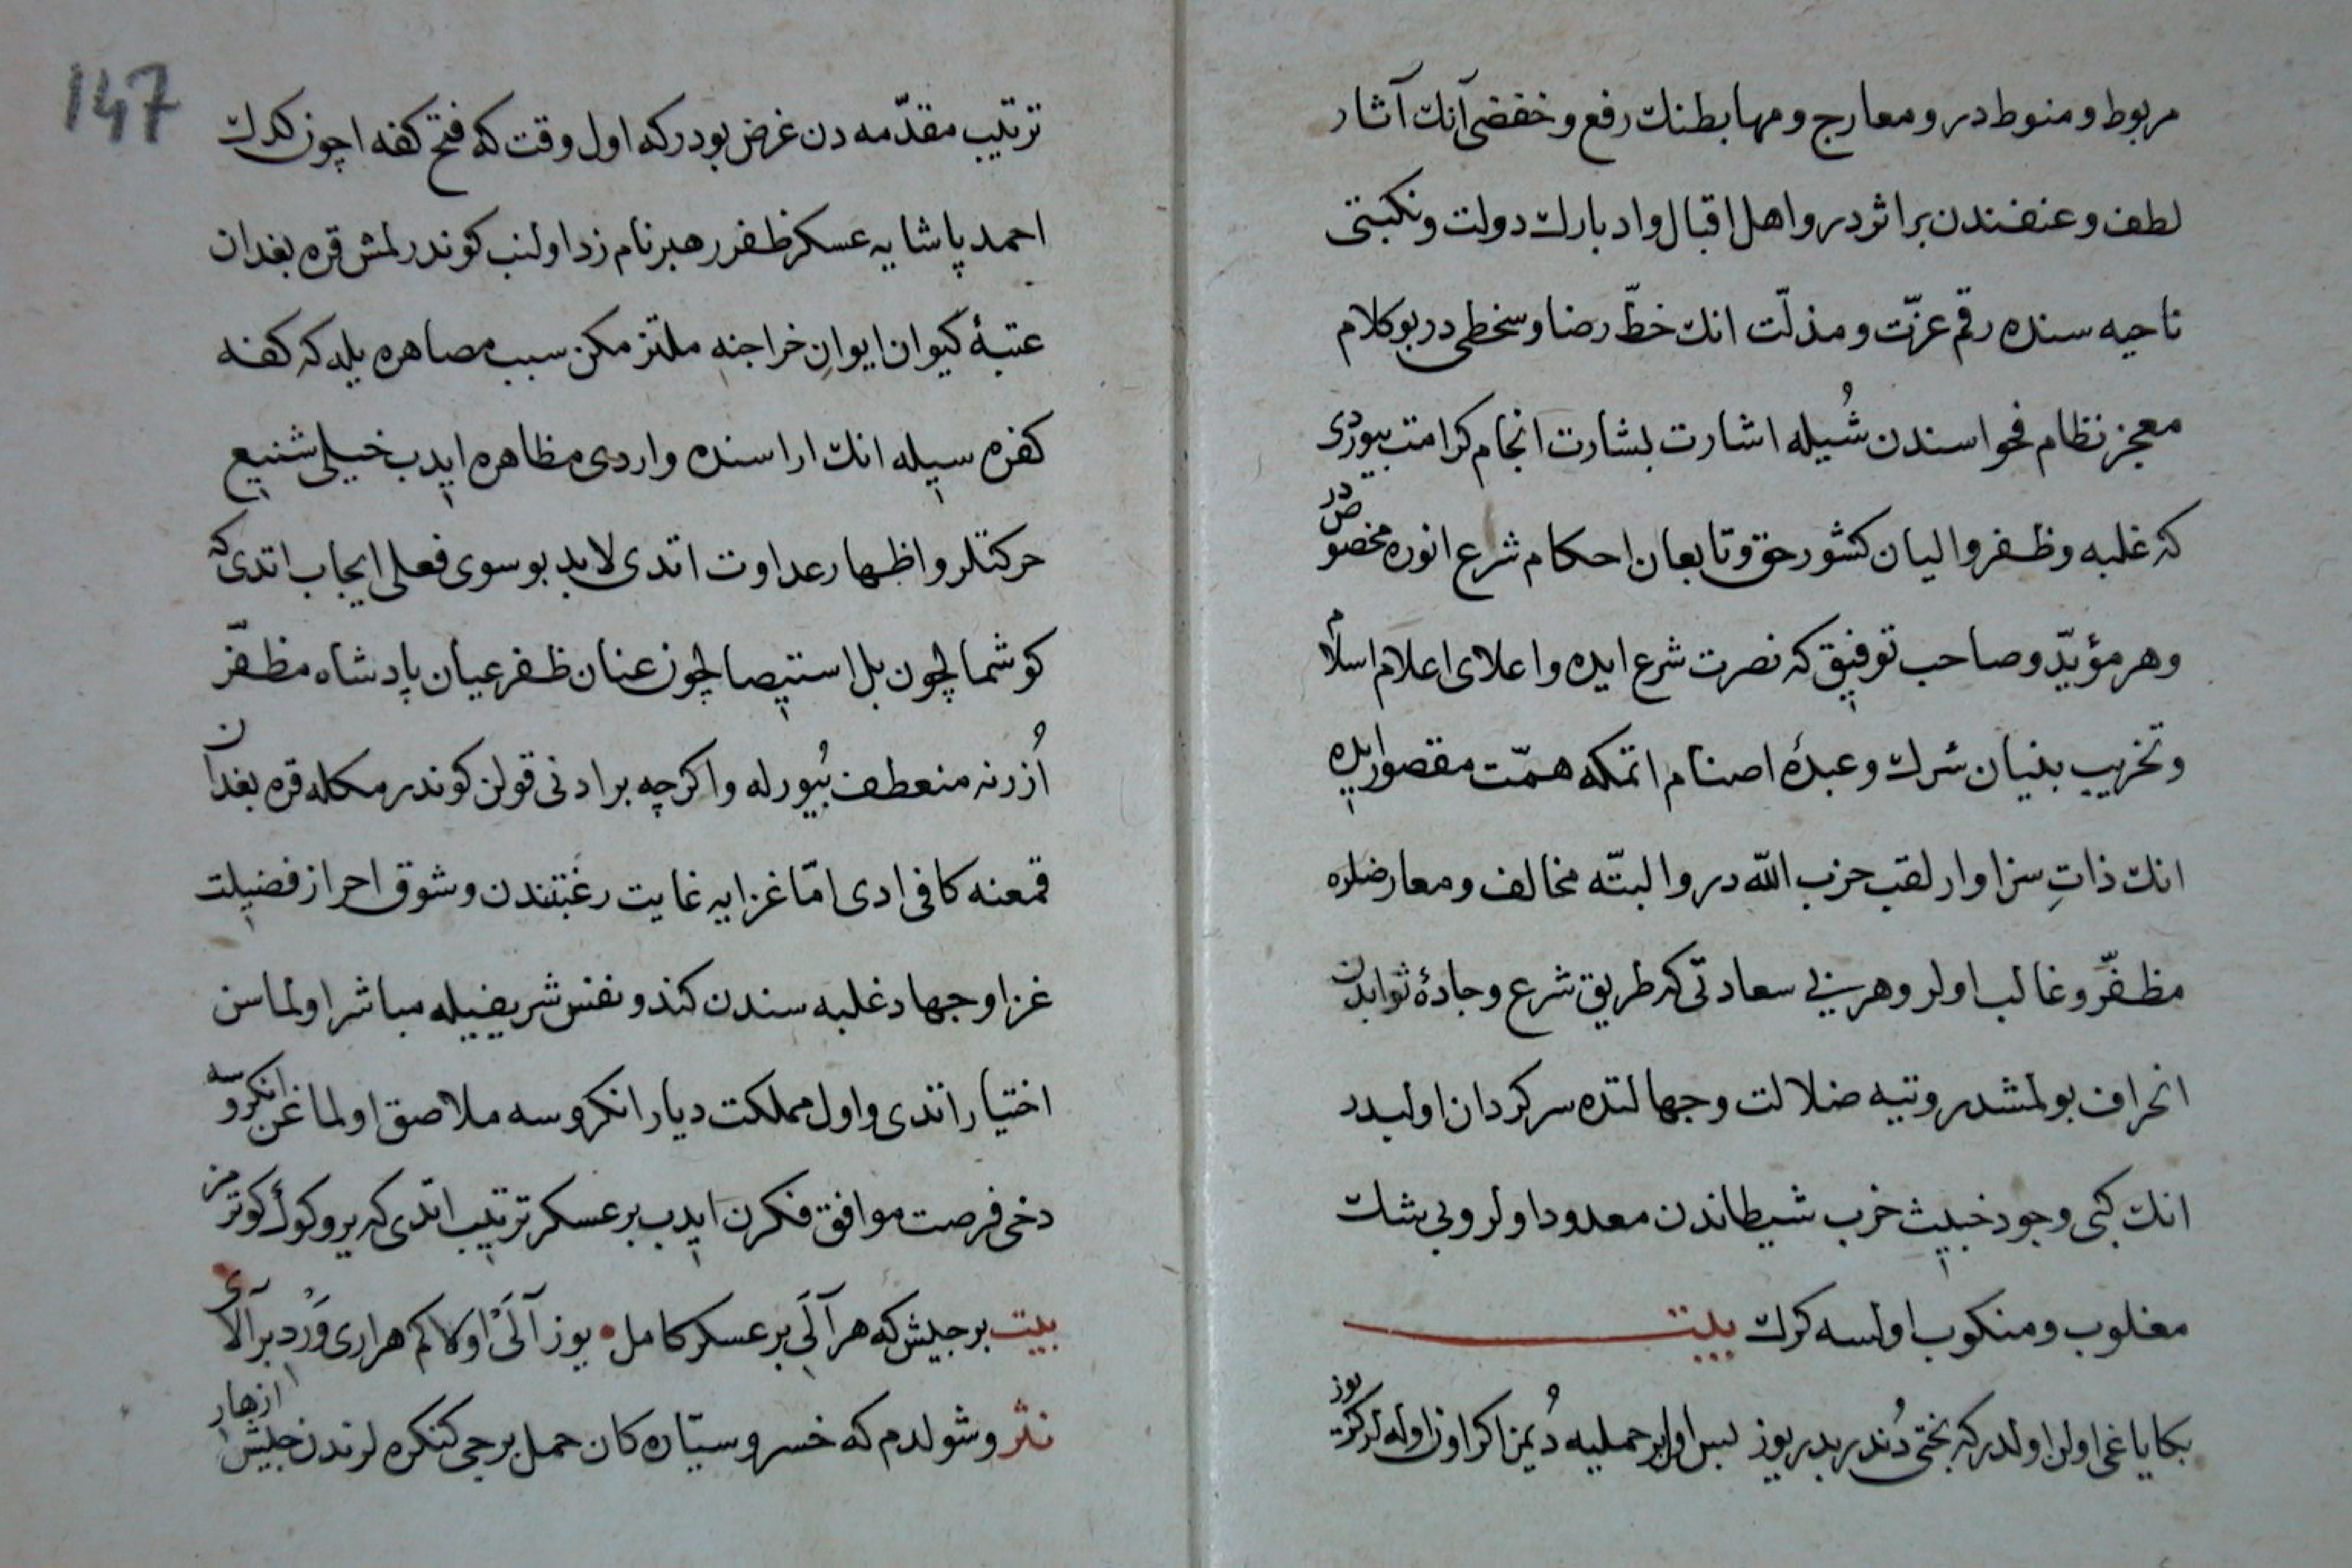 مربوط و منوط در و معارج و مهابطنك رفع و خفضی آنك آثار
لطف و عنفندن بر اثر در و اهل اقبال و ادبارك دولت و نكبتی
ناحیه سنده رقم عزّت و مذلّت انك خطّ رضا و سخطی در بو كلام
معجز نظام فحواسندن شُیله اشارت بشارت انجام كرامت بیوردی
كه غلبه و ظفر والیان كشور حق و تابعان احكام شرع انوره مخصوص در
و هر مؤیّد و صاحب توفیق كه نصرت شرع ایده و اعلای اعلام اسلام
و تخریب بنیان شرك و عبدهٔ اصنام اتمكه همّت مقصور ایده
انك ذاتِ سزاوار لقب حزب اللّه در و البتّه مخالف و معارضلره
مظفّر و غالب اولر و هر بی سعادتی كه طریق شرع و جادهٔ ثوابدن
انحراف بولمشدر و تیه ضلالت و جهالتده سركردان اولیدر
انك كبی وجود خبیث خرب شیطاندن معدود اولر و بی شك
مغلوب و منكوب اولسه كرك بیت
بكا یاغی اولن اولدر كه بختی دُندربدر یوز لبس اولر حملیه دُیمز اكر اوزاوله لركر یوز
147
ترتیب مقدّمه دن غرض بودر كه اول وقت كه فتح كفه اچون كدك
احمد پاشایه عسكر ظفر رهبر نام زد اولنب كوندرلمش قره بغدان
عتبهٔ كیوان ایوانِ خراجنه ملتزمكن سبب مصاهره یله كه كفه
كفره سیله انك اراسنده واردی مظاهره ایدب خیلی شنیع
حركتلر و اظهار عداوت اتدی لابد بو سوی فعلی ایجاب اتدی كه
كوشمالچون بل استیصالچون عنان ظفر عیان پادشاه مظفّر
اُزرنه منعطف بُیورله و اكرچه بر ادنی قولن كوندرمكله قره بغدان
قمعنه كافی ادی امّا غزایه غایت رغبتندن و شوق احراز فضیلت
غزا و جهاد غلبه سندن كندو نفس شریفیله مباشر اولماسن
اختیار اتدی و اول مملكت دیار انكروسه ملاصق اولماغن انكروسه
دخی فرصت موافق فكرن ایدب بر عسكر ترتیب اتدی كه یر و كوك كوترمز
بیت بر جیش كه هر آلَی بر عسكر كامل • یوز آلَیْ اولا كم هراری وَرْد بر آلای
نثر و شولدم كه خسرو سیّاره كان حمل برجی كنكره لرندن جیش ازهار